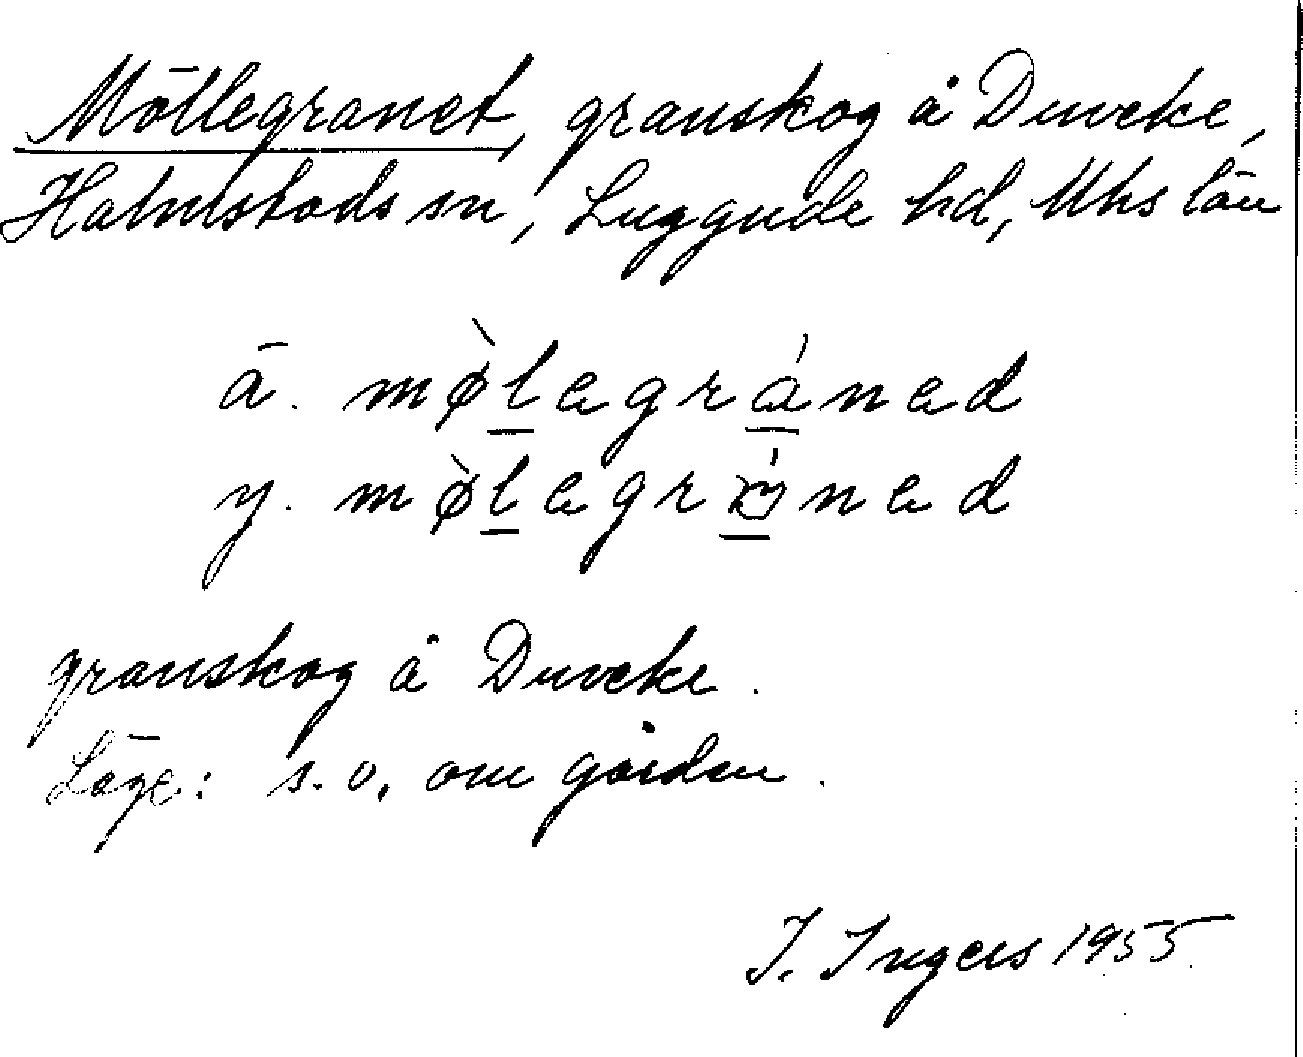 Möllegranet, granskog å Duveke,
Halmstads sn, Luggude hd, Mhs län
ä. mø̀l̲egrá̲ned
y. mø̀l̲egrɒ̲́ned
granskog å Duveke.
Läge: s.o. om gården.
I. Ingers 1955